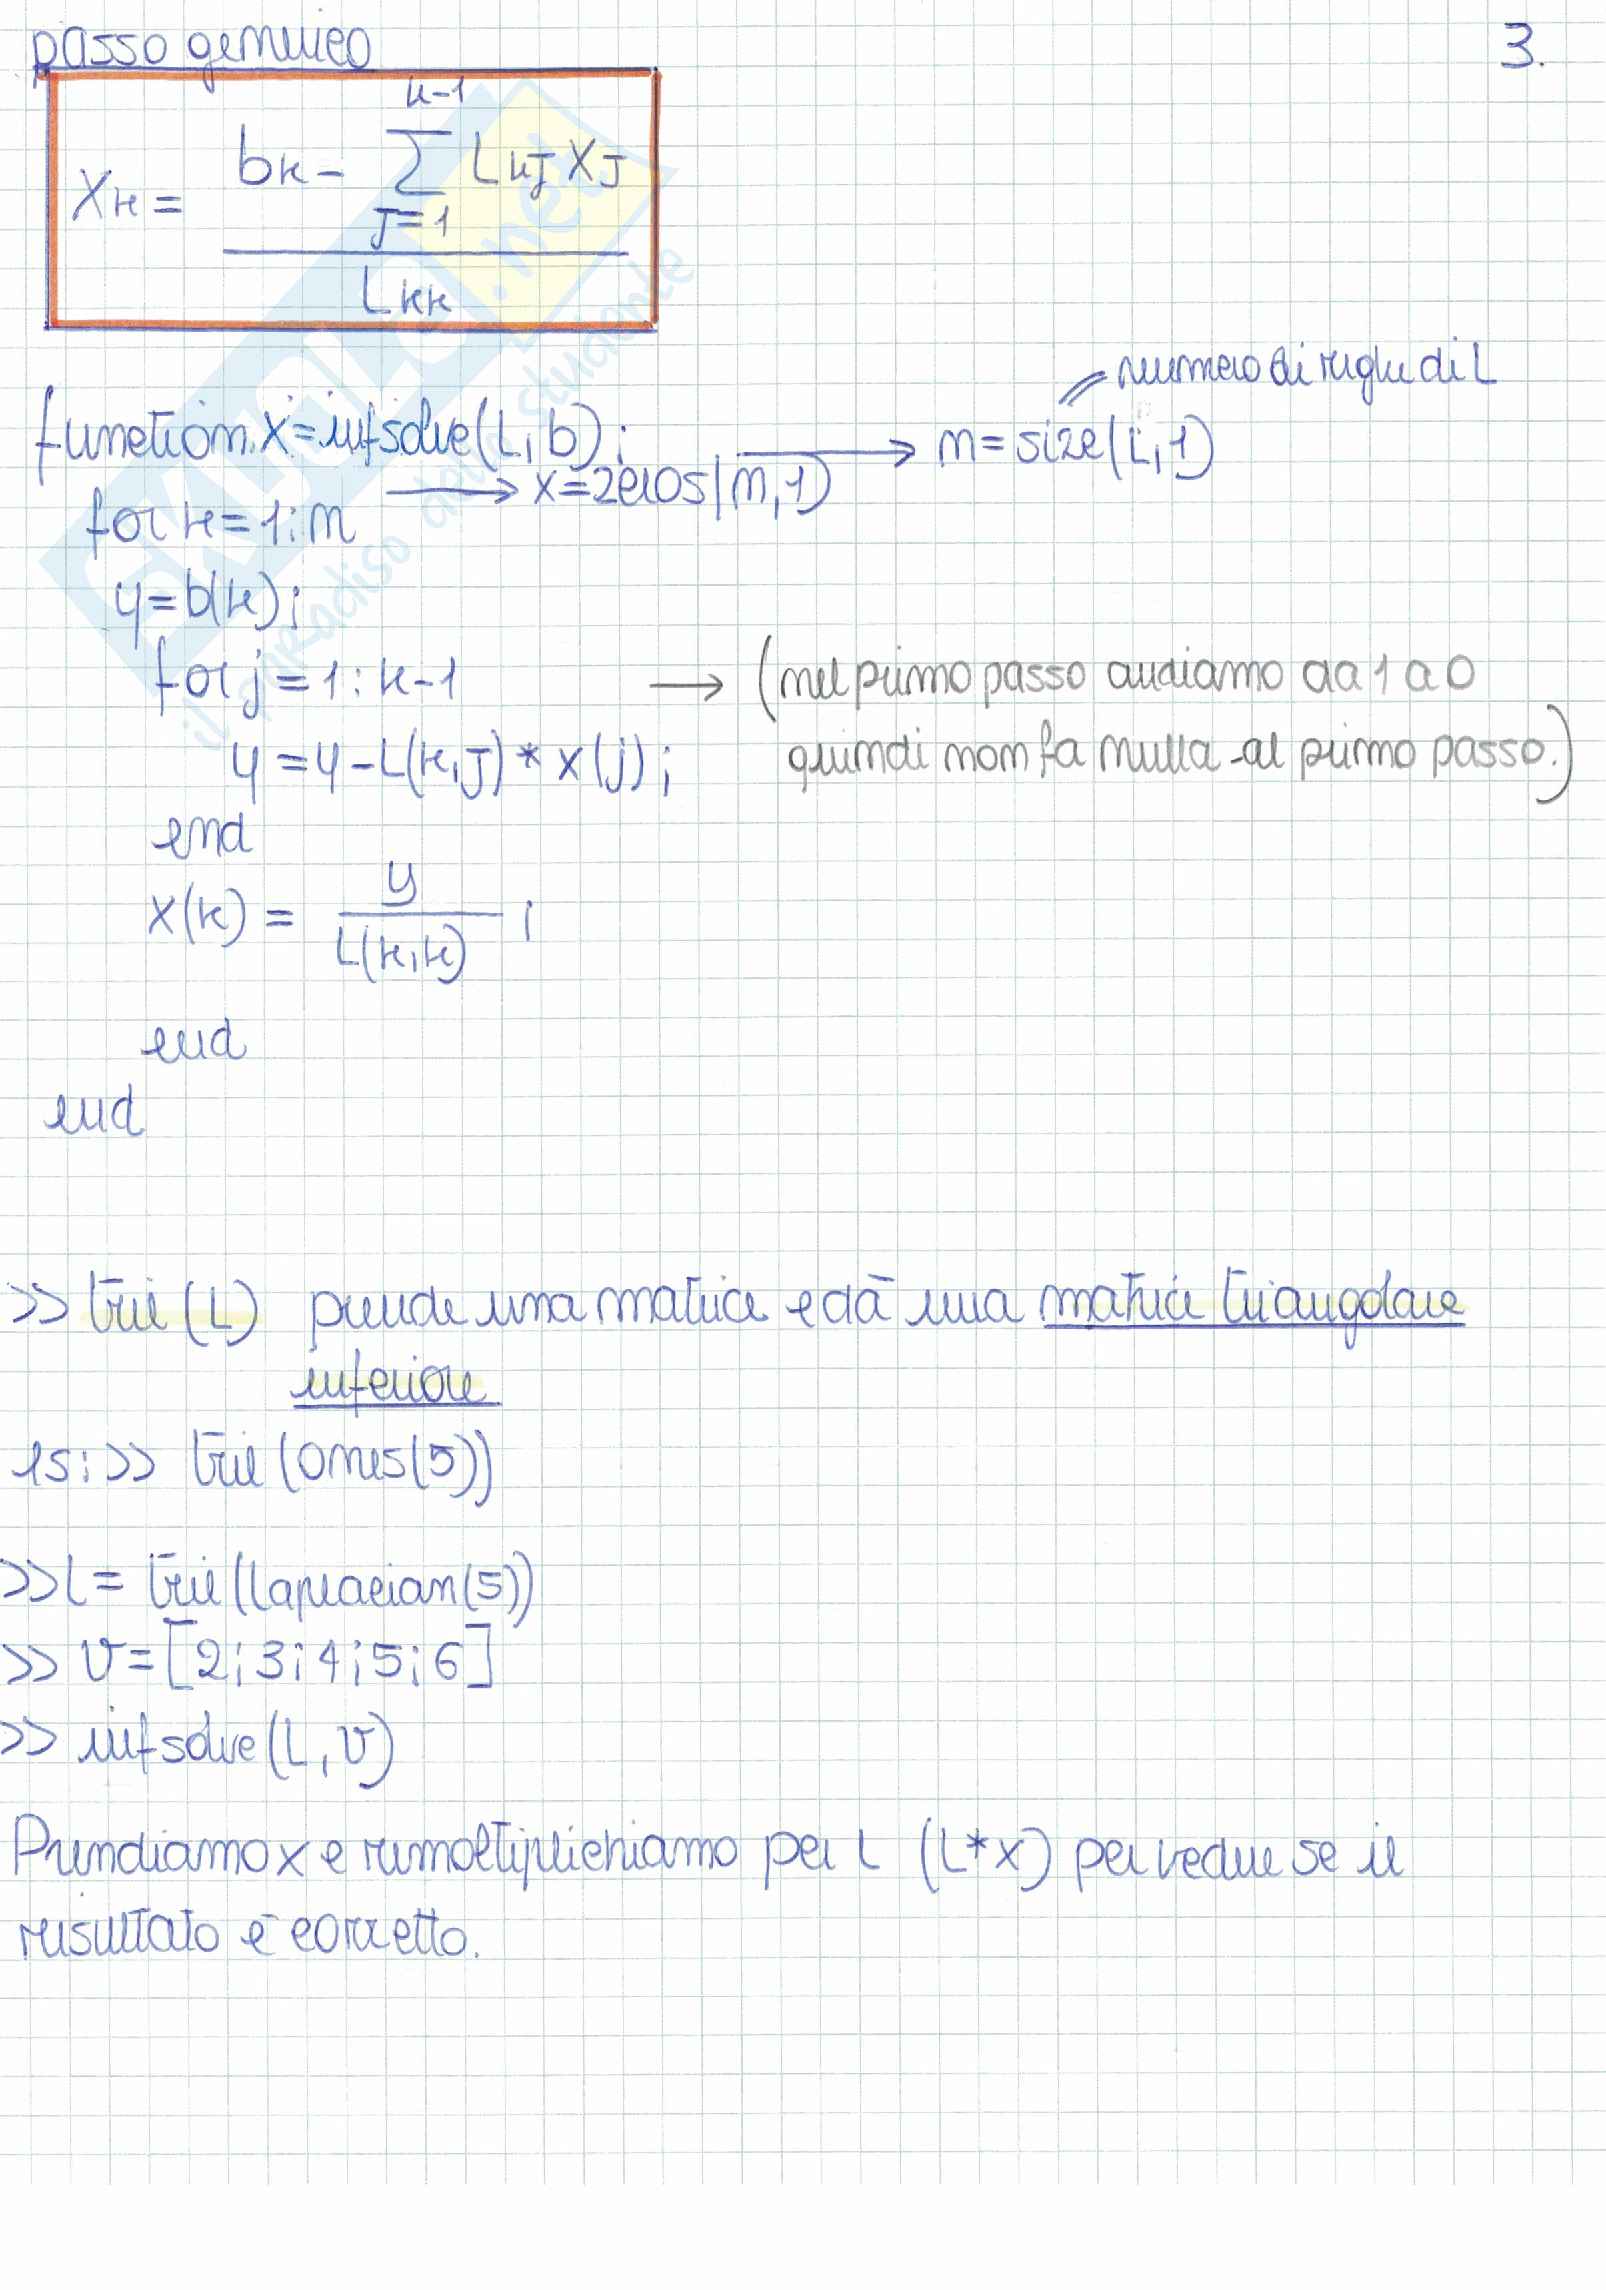 passo generico
3.
k-1
Xk = bk - Σ Lkj Xj
j=1
Lkk
numero di righe di L
function x=infsolve(L,b); → n=size(L,1)
→ x=zeros(n,1)
for k=1:n
y=b(k);
for j=1:k-1 → (nel primo passo andiamo da 1 a 0
y=y-L(k,j)*x(j); quindi non fa nulla al primo passo.)
end
x(k) = y
L(k,k) ;
end
end
>> tril(L) prende una matrice e dà una matrice triangolare
inferiore
es:>> tril(ones(5))
>>L= tril(laplacian(5))
>> v=[2;3;4;5;6]
>> infsolve(L,v)
Prendiamo x e rimoltiplichiamo per L (L*x) per vedere se il
risultato è corretto.
SKUOLA.net
il paradiso dello studente